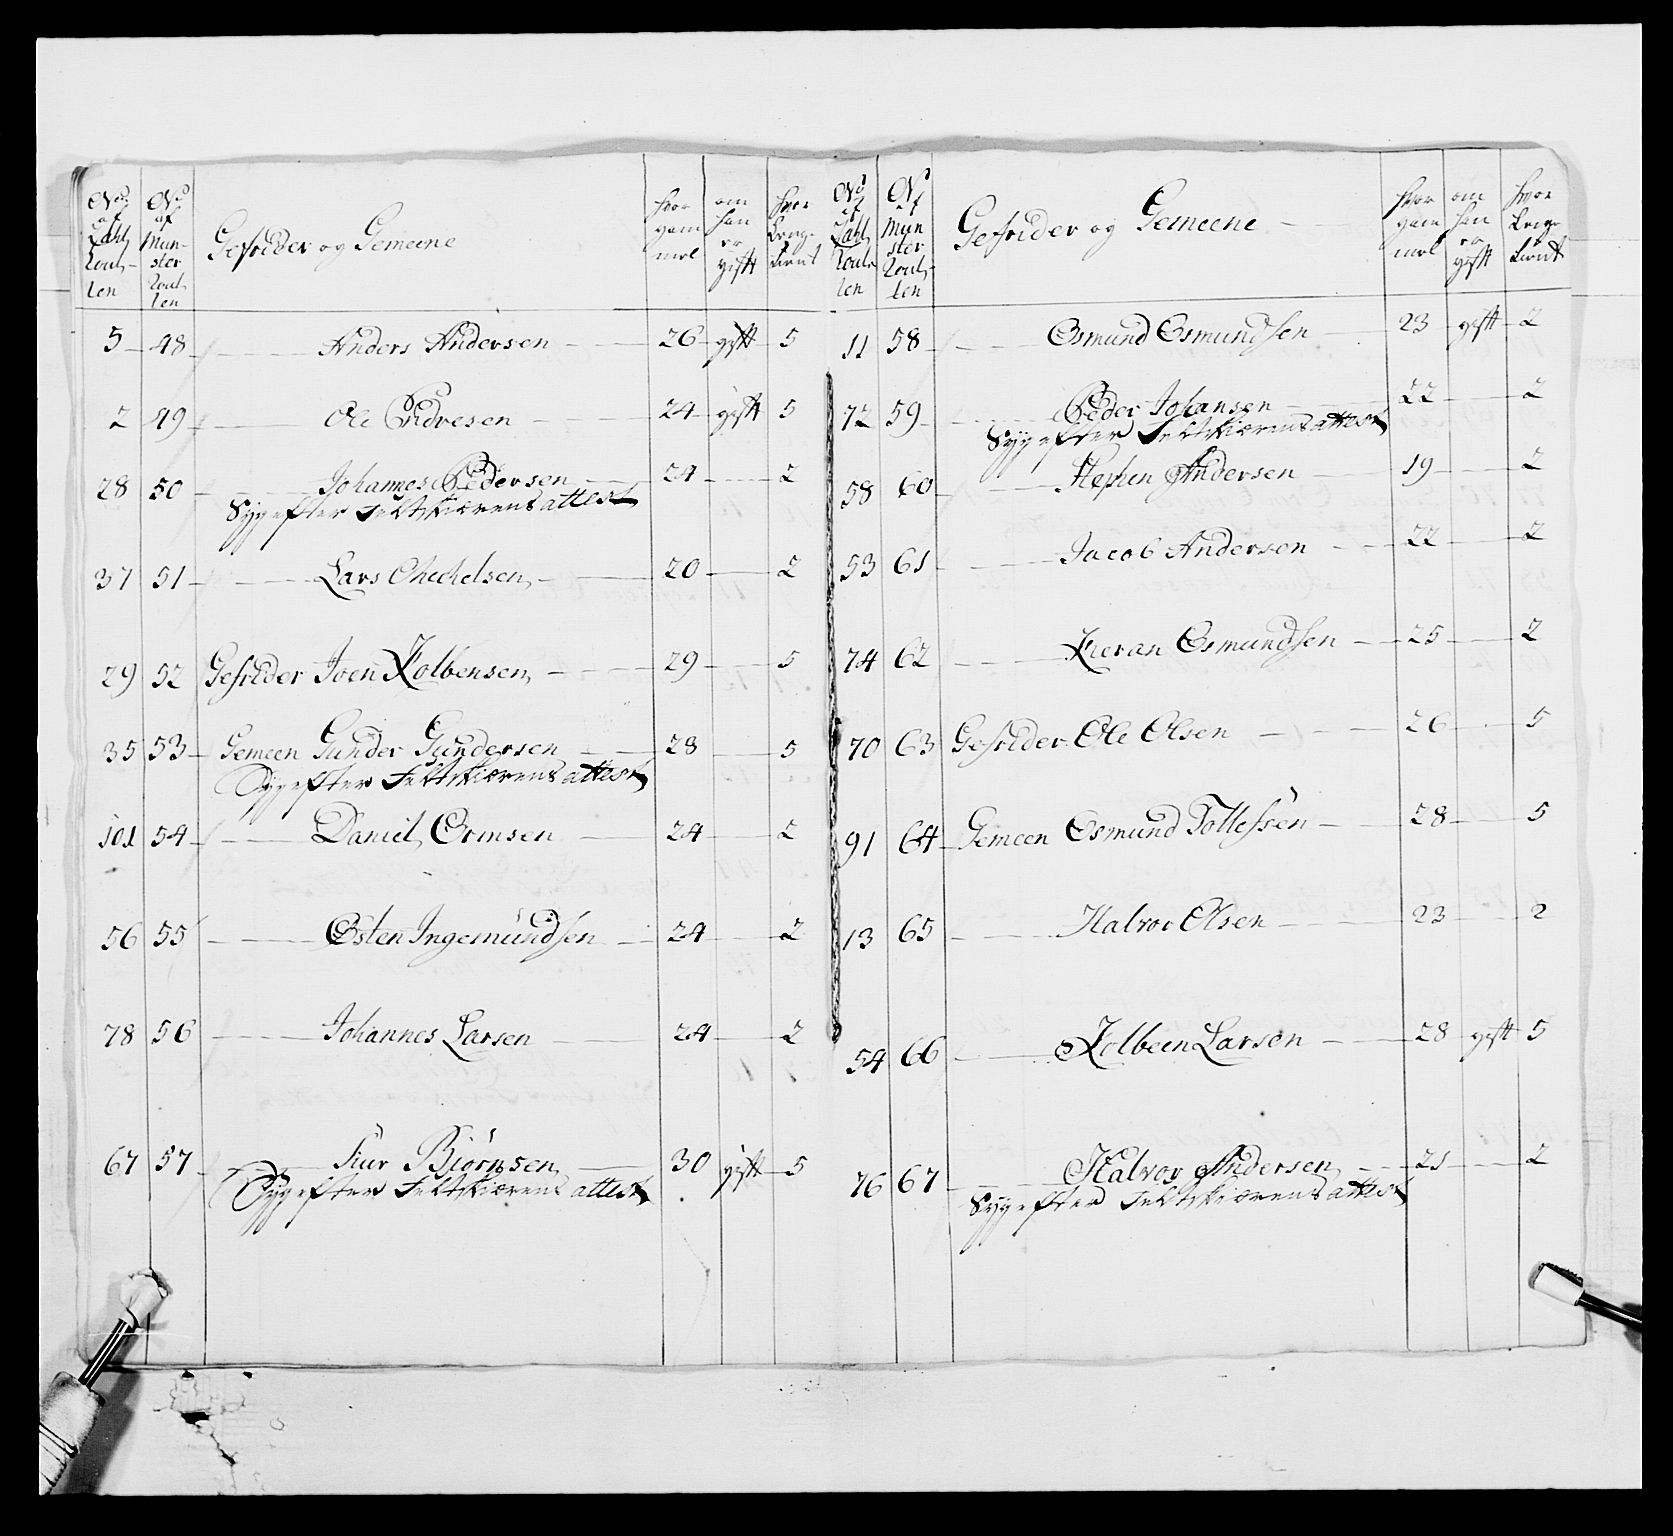 No af Zahl Roul- len | No af Mun- ster Roul- len | Gefrider og Gemeene | hvor gam mel | om han er gift | hvor lenge tient
5 48 Anders Andersen 26 gift 5
2 49 Ole Endresen 24 gift 5
28 50 Johannes Pedersen 24 2
Syg efter Feltskiærens attest
37 51 Lars Michelsen 20 2
29 52 Gefrider Joen Kolbensen 29 5
35 53 Gemeen Gunder Gundersen 28 5
Syg efter Feltskiærens attest
101 54 Daniel Ormsen 24 2
56 55 Østen Ingemundsen 24 2
78 56 Johannes Larsen 24 2
67 57 Siur Biørnsen 30 gift 5
Syg efter Feltskiærens attest
No af Zahl Roul- len | No af Mun ster Roul- len | Gefrider og Gemeene | hvor gam mel | om han er gift | hvor lenge tient
11 58 Osmund Osmundsen 23 gift 2
72 59 Peder Johansen 22 2
Syg efter Feltskiærens attest
58 60 Stephen Andersen 19 2
53 61 Jacob Andersen 22 2
74 62 Osmundsen 25 2
70 63 Gefrider Ole Olsen 26 5
91 64 Gemeen Osmund Tollefsen 28 5
13 65 Halvor Olsen 23 2
54 66 Kolbeen Larsen 28 gift 5
76 67 Halvor Andersen 21 2
Syg efter Feltskiærens attest